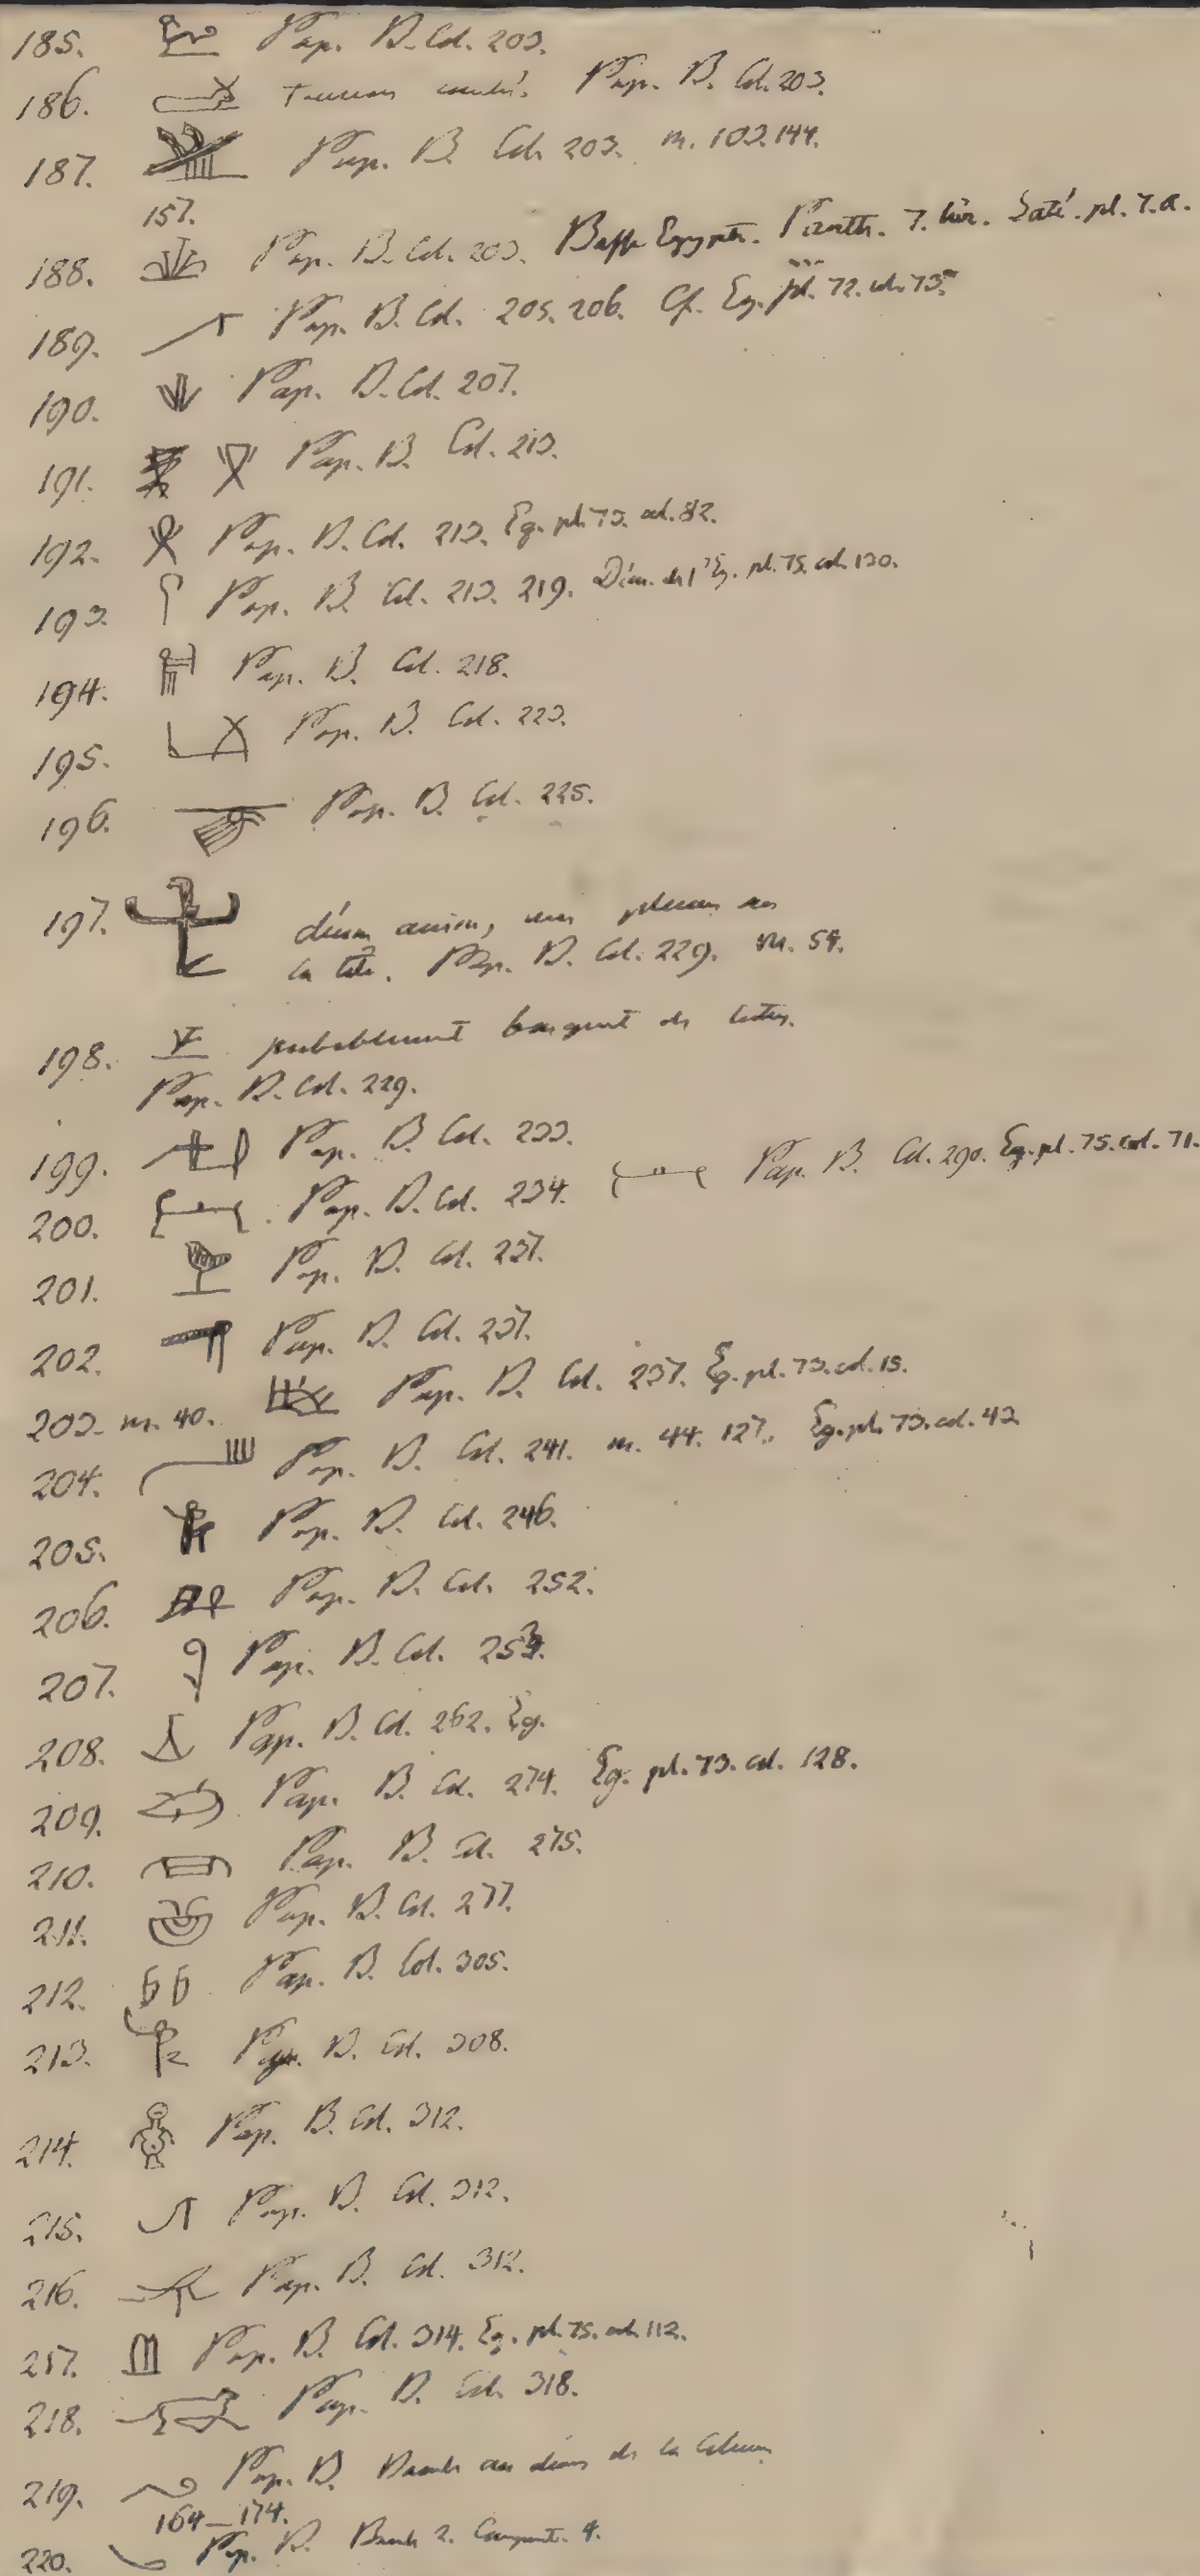 185. Pap. B. Col. 203.
186. Taureau couché. Pap. B. Col. 203.
187. Pap. B. Col. 203. m. 103. 144.
157.
188. Pap. B. Col. 203. Basse Egypte. Panth. 7. liv. Saté. pl. 7. a.
189. Pap. B. Col. 205. 206. Cf. Eg. pl. 72. col. 73.
190. Pap. B. Col. 207.
191. Pap. B. Col. 213.
192. Pap. B. Col. 213. Eg. pl. 73. col. 82.
193. Pap. B. Col. 213. 219. de l'Eg. pl. 75. col. 130.
194. Pap. B. Col. 218.
195. Pap. B. Col. 223.
196. Pap. B. Col. 225.
197. assise, une plume sur
la tête. Pap. B. Col. 229. m. 54.
198. probablement bouquet de lotus.
Pap. B. Col. 229.
199. Pap. B. Col. 233.
200. Pap. B. Col. 234. Pap. B. Col. 290. Eg. pl. 75. col. 71.
201. Pap. B. Col. 237.
202. Pap. B. Col. 237.
203. m. 40. Pap. B. Col. 237. Eg. pl. 73. col. 15.
204. Pap. B. Col. 241. m. 44. 127. Eg. pl. 73. col. 43
205. Pap. B. Col. 246.
206. Pap. B. Col. 252.
207. Pap. B. Col.
208. Pap. B. Col. 262. Eg.
209. Pap. B. Col. 274. Eg. pl. 73. col. 128.
210. Pap. B. Col. 275.
211. Pap. B. Col. 277.
212. Pap. B. Col. 305.
213. Pap. B. Col. 308.
214. Pap. B. Col. 312.
215. Pap. B. Col. 312.
216. Pap. B. Col. 312.
217. Pap. B. Col. 314. Eg. pl. 75. col. 112.
218. Pap. B. Col. 318.
219. Pap. B. Bande au dessus de la Colonne
164–174.
220. Pap. B. Bande 2. Compart. 4.